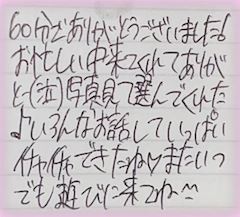 60分でありがとうございました!
お忙しい中来てくれてありが
と(泣)写真見て選んでくれた
♪いろんなお話していっぱい
イチャイチャできたね♥またいつ
でも遊びに来てね^^